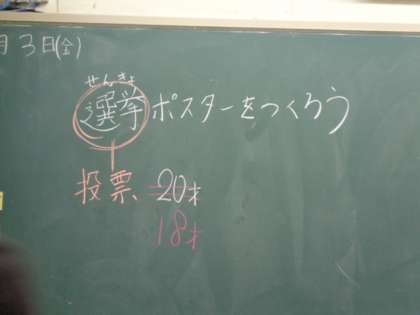 月3日(金)
せんきょ
選挙ポスターをつくろう
投票 20才
18才